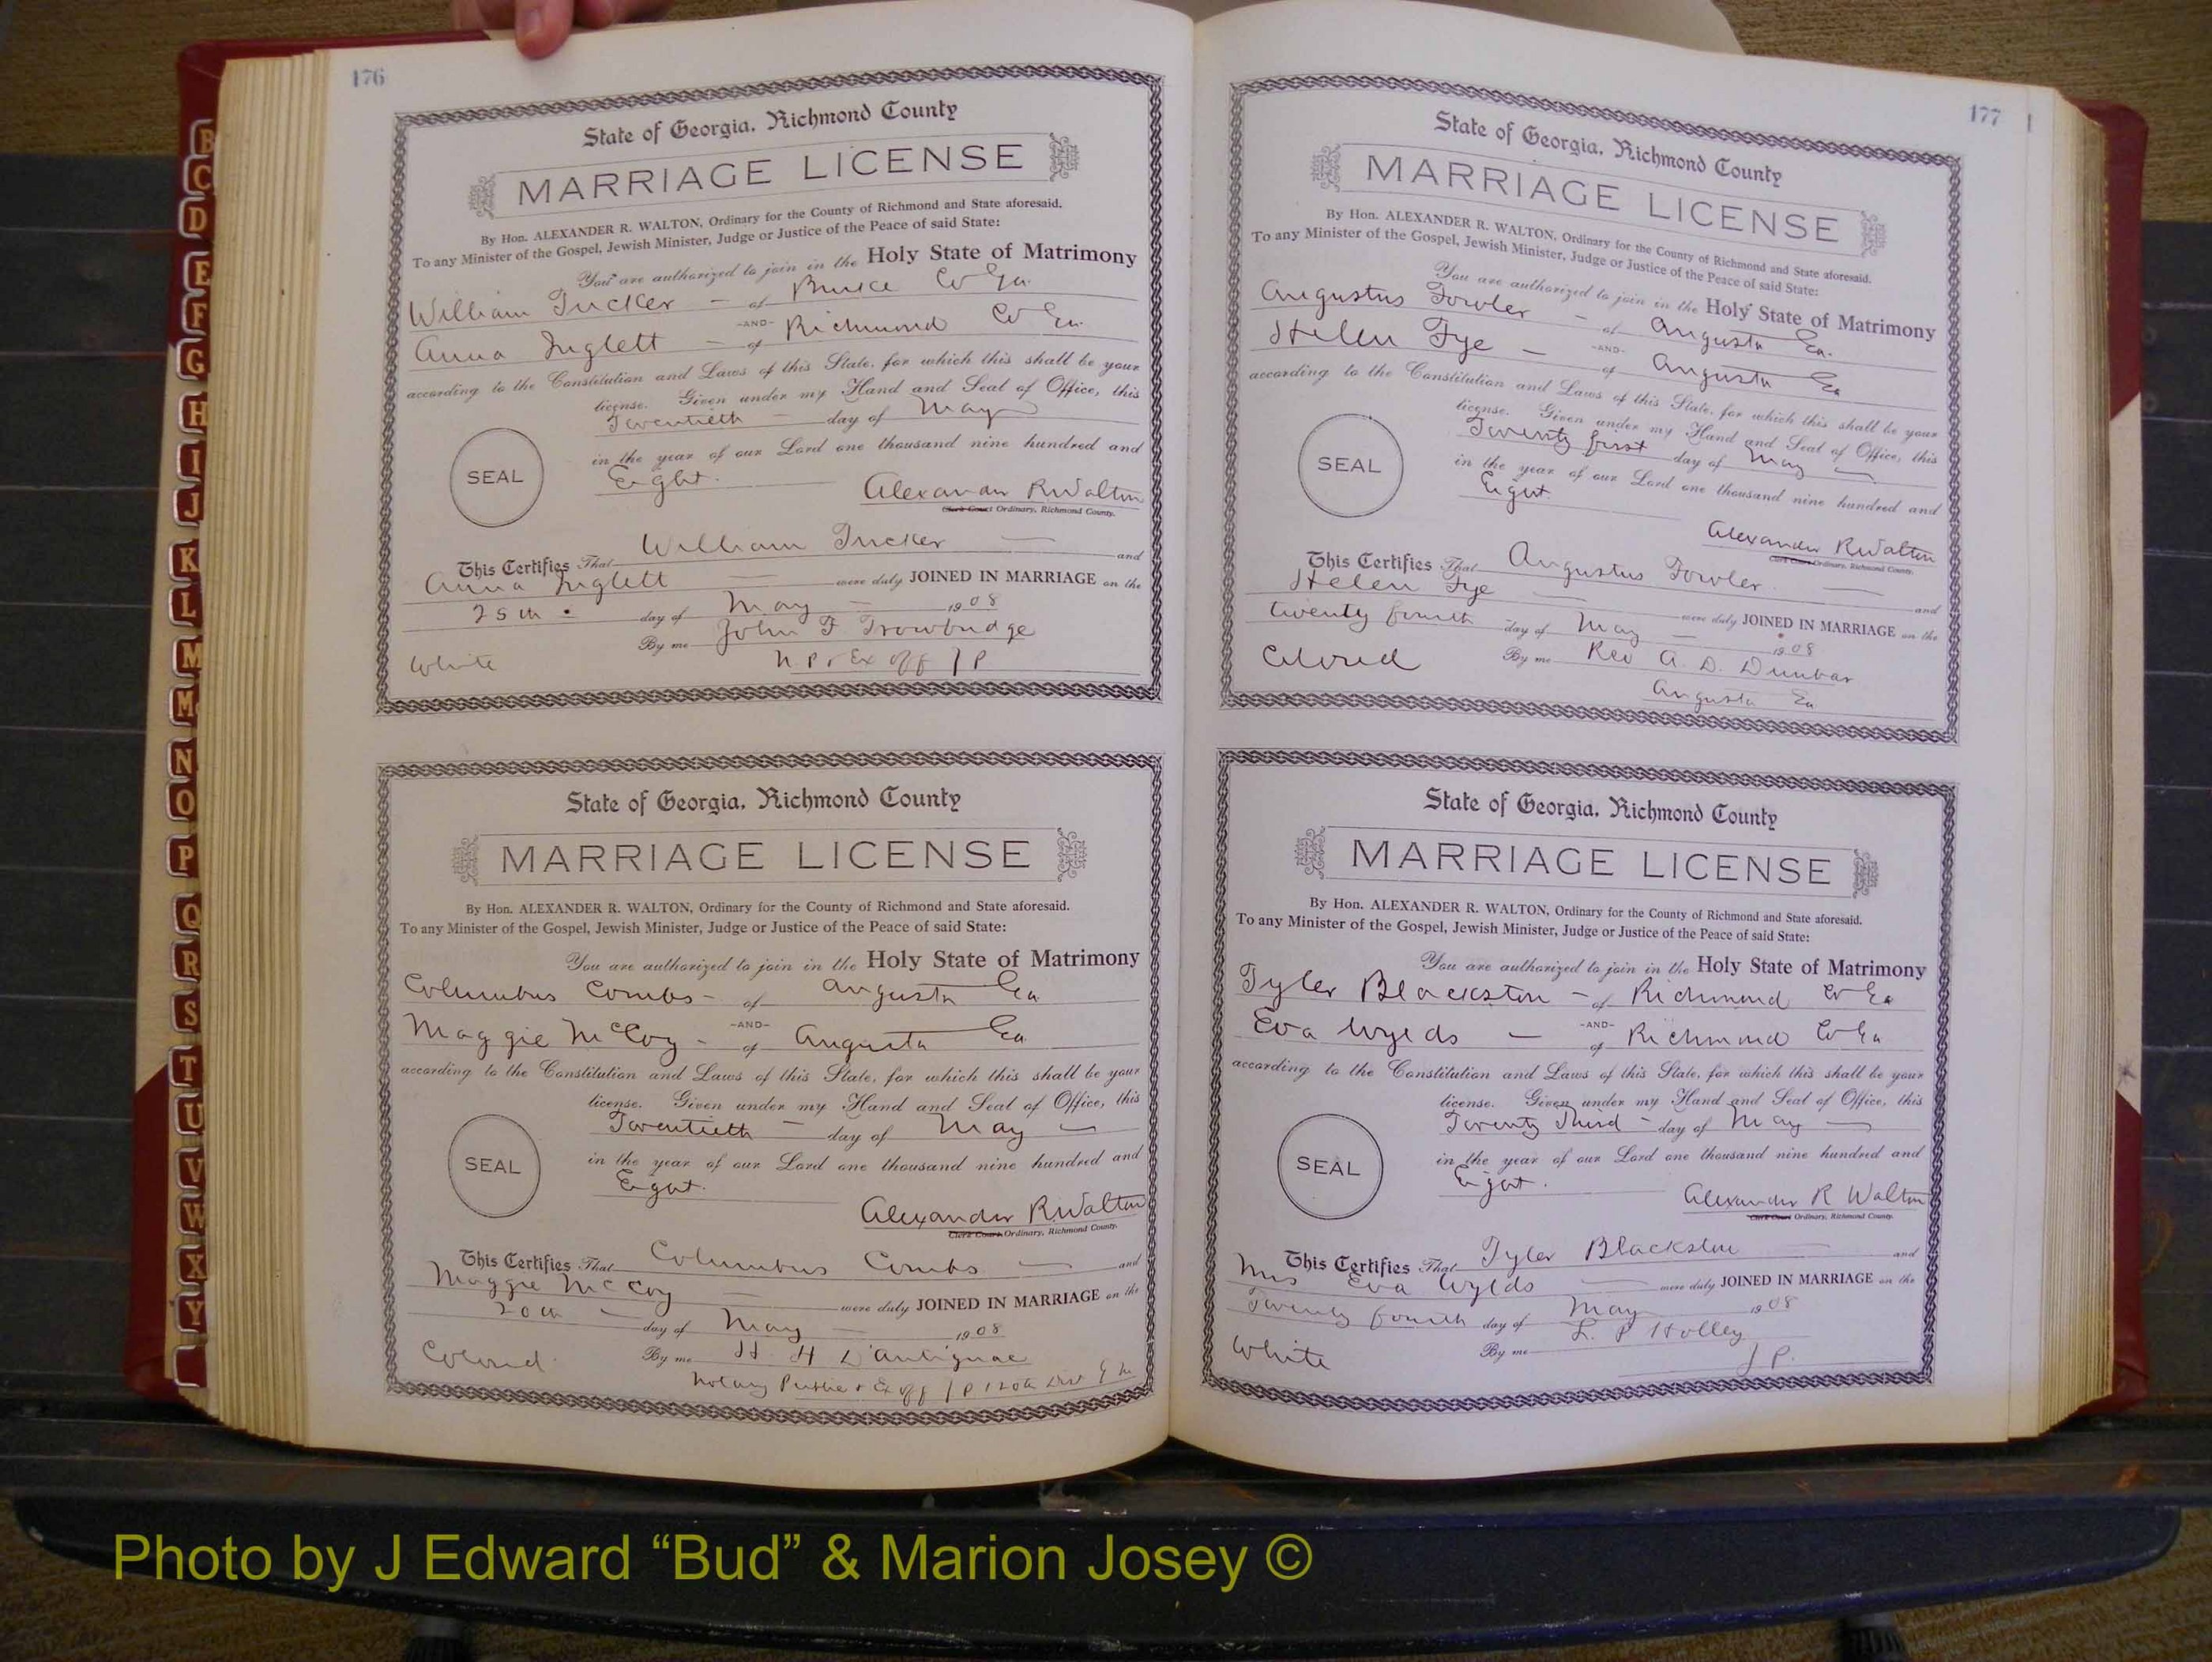 176
State of Georgia, Richmond County
MARRIAGE LICENSE
By Hon. ALEXANDER R. WALTON, Ordinary for the County of Richmond and State aforesaid.
To any Minister of the Gospel, Jewish Minister, Judge or Justice of the Peace of said State:
You are authorized to join in the Holy State of Matrimony
William Tucker - of Burke Co Ga.
-AND-
Anna Inglett - of Richmond Co Ga.
according to the Constitution and Laws of this State, for which this shall be your
license. Given under my Hand and Seal of Office, this
Twentieth - day of May
in the year of our Lord one thousand nine hundred and
SEAL
Eight.
Alexander R Walton
Clerk Court Ordinary, Richmond County.
This Certifies That William Tucker - and
Anna Inglett - were duly JOINED IN MARRIAGE on the
25th day of May - 1908
By me John F Trowbridge
White N P & Ex off J P
State of Georgia, Richmond County
MARRIAGE LICENSE
By Hon. ALEXANDER R. WALTON, Ordinary for the County of Richmond and State aforesaid.
To any Minister of the Gospel, Jewish Minister, Judge or Justice of the Peace of said State:
You are authorized to join in the Holy State of Matrimony
Columbus Combs - of Augusta Ga
-AND-
Maggie McCoy - of Augusta Ga
according to the Constitution and Laws of this State, for which this shall be your
license. Given under my Hand and Seal of Office, this
Twentieth - day of May -
in the year of our Lord one thousand nine hundred and
SEAL
Eight.
Alexander R Walton
Clerk Court Ordinary, Richmond County.
This Certifies That Columbus Combs - and
Maggie McCoy - were duly JOINED IN MARRIAGE on the
20th - day of May - 1908
Colored By me H H D'Antignac
Notary Public & Ex off J P 120th Dist G M
177
State of Georgia, Richmond County
MARRIAGE LICENSE
By Hon. ALEXANDER R. WALTON, Ordinary for the County of Richmond and State aforesaid.
To any Minister of the Gospel, Jewish Minister, Judge or Justice of the Peace of said State:
You are authorized to join in the Holy State of Matrimony
Augustus Fowler - of Augusta Ga.
-AND-
Helen Fye - of Augusta Ga
according to the Constitution and Laws of this State, for which this shall be your
license. Given under my Hand and Seal of Office, this
Twenty first day of May -
in the year of our Lord one thousand nine hundred and
SEAL
Eight.
Alexander R Walton
Clerk Court Ordinary, Richmond County.
This Certifies That Augustus Fowler - and
Helen Fye - were duly JOINED IN MARRIAGE on the
twenty fourth day of May - 1908
Colored By me Rev A. D. Dunbar
Augusta Ga
State of Georgia, Richmond County
MARRIAGE LICENSE
By Hon. ALEXANDER R. WALTON, Ordinary for the County of Richmond and State aforesaid.
To any Minister of the Gospel, Jewish Minister, Judge or Justice of the Peace of said State:
You are authorized to join in the Holy State of Matrimony
Tyler Blackston - of Richmond Co Ga
-AND-
Eva Wylds - of Richmond Co Ga
according to the Constitution and Laws of this State, for which this shall be your
license. Given under my Hand and Seal of Office, this
Twenty Third - day of May -
in the year of our Lord one thousand nine hundred and
SEAL
Eight.
Alexander R Walton
Clerk Court Ordinary, Richmond County.
This Certifies That Tyler Blackston - and
Mrs Eva Wylds - were duly JOINED IN MARRIAGE on the
Twenty fourth day of May 1908
White By me L. P Holley
J P.
B
C
D
E
F
G
H
I
J
K
L
M
Mc
N
O
P
Q
R
S
T
U
V
W
X
Y
Photo by J Edward “Bud” & Marion Josey ©